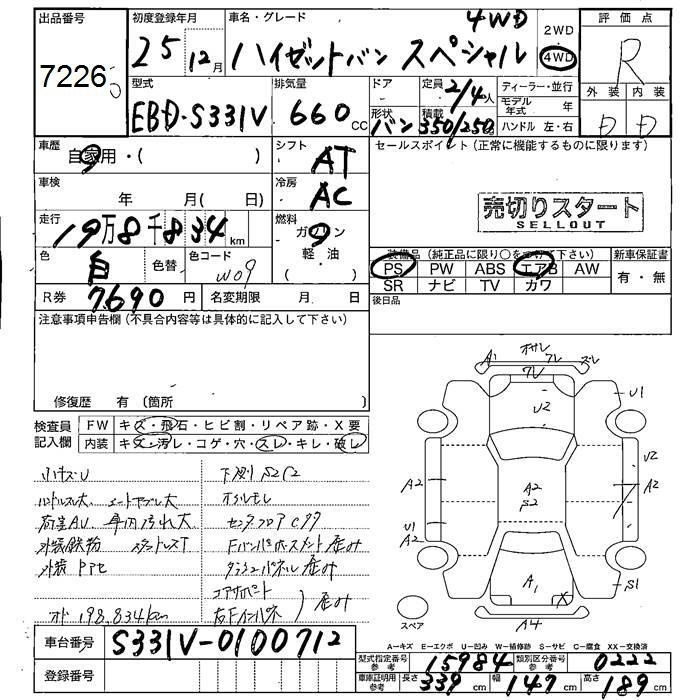 出品番号
7226
初度登録年月
25 12月
車名・グレード
4WD
ハイゼットバン スペシャル
2WD
4WD
評価点
R
外装 内装
D D
型式
EBD-S331V
排気量
660 cc
ドア
形状
バン
定員
2/4人
積載
350/250
ディーラー・並行
モデル年式 年
ハンドル 左・右
車歴
自家用・( )
シフト
AT
セールスポイント(正常に機能するものに限ります)
車検
年 月( 日)
冷房
AC
売切りスタート
SELLOUT
走行
19万8千834km
燃料
ガソリン
軽・油
( )
色
白
色替
色コード
W09
装備品(純正品に限り○をつけて下さい)
PS PW ABS エアB AW
SR ナビ TV カワ
新車保証書
有・無
R券
7,690円
名変期限 月 日
後日品
注意事項申告欄(不具合内容等は具体的に記入して下さい)
修復歴 有(箇所 )
検査員記入欄
FW キズ・飛石・ヒビ割・リペア跡・X要
内装 キズ・汚レ・コゲ・穴・スレ・キレ・破レ
小キズU
ハンドルスレ大
荷室AU 車内汚れ大
外装鉄粉 スタッドレスT
外装PPセ
オド 198,834km
下廻りS2C2
オイルモレ
歪み
歪み
歪み
オサレ
A1 フレ ズレ
フレ
U1
U2
U2
A2
A2
A2
S2
U1
A2
A1
X
S1
A4
スペア
A-キズ E-エクボ U-凹み W-補修跡 S-サビ C-腐食 XX-交換済
車台番号
S331V-0100712
登録番号
型式指定番号 参考
15984
類別区分番号 参考
0222
車庫証明用 参考
長さ 339cm
幅 147cm
高さ 189cm